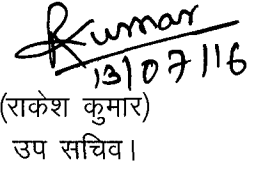 RKumar
13/07/16
(राकेश कुमार)
उप सचिव।